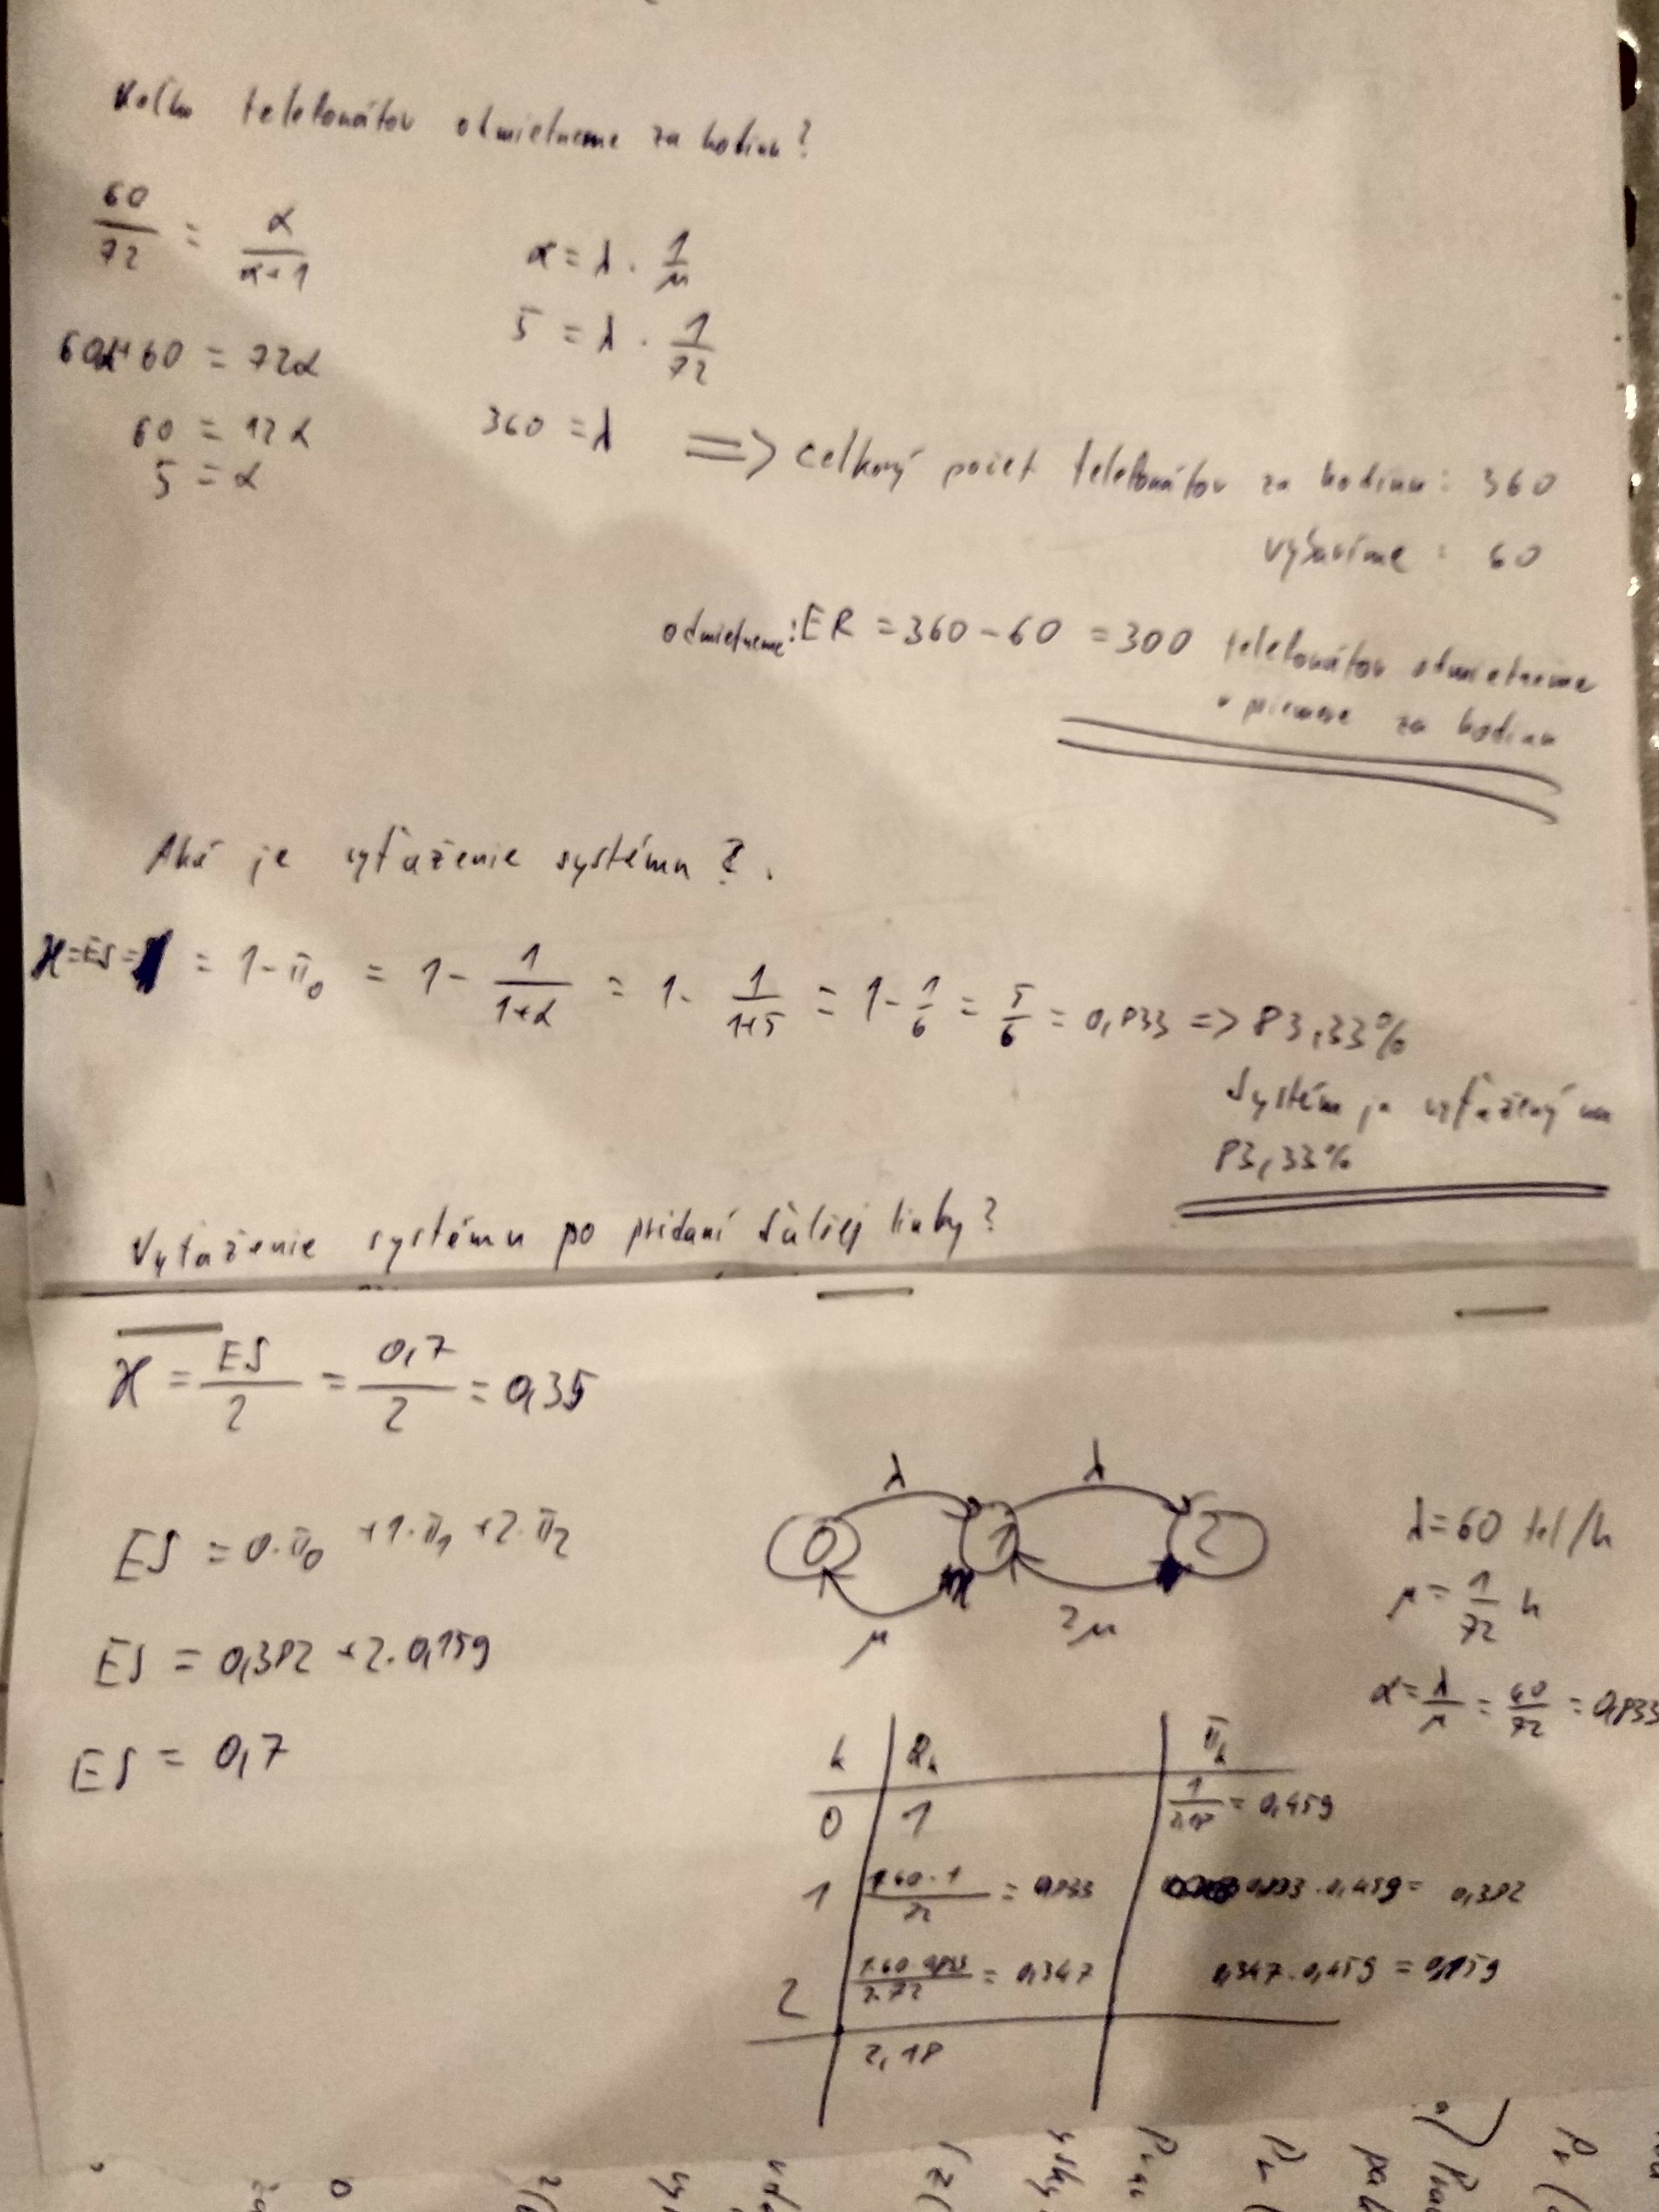 Koľko telefonátov odmietneme za hodinu?
60/72 = α/(α+1)
α = λ · 1/μ
5 = λ · 1/72
60α+60 = 72α
60 = 12α
5 = α
360 = λ => celkový počet telefonátov za hodinu: 360
vybavíme: 60
odmietneme: ER = 360 - 60 = 300 telefonátov odmietneme
v priemere za hodinu
Aké je vyťaženie systému?
ϰ = ES = = 1 - π₀ = 1 - 1/(1+α) = 1 - 1/(1+5) = 1 - 1/6 = 5/6 = 0,833 => 83,33%
Systém je vyťažený na
83,33%
Vyťaženie systému po pridaní ďalšej linky?
ϰ = ES/2 = 0,7/2 = 0,35
λ λ
0 1 2
μ 2μ
λ = 60 tel/h
μ = 1/72 h
α = λ/μ = 60/72 = 0,833
ES = 0·π₀ + 1·π₁ + 2·π₂
ES = 0,382 + 2·0,159
ES = 0,7
k π_k
0 1 1/2,18 = 0,459
1 1·60·1/72 = 0,833 0,833·0,459 = 0,382
2 1·60·0,833/2·72 = 0,347 0,347·0,459 = 0,159
2,18